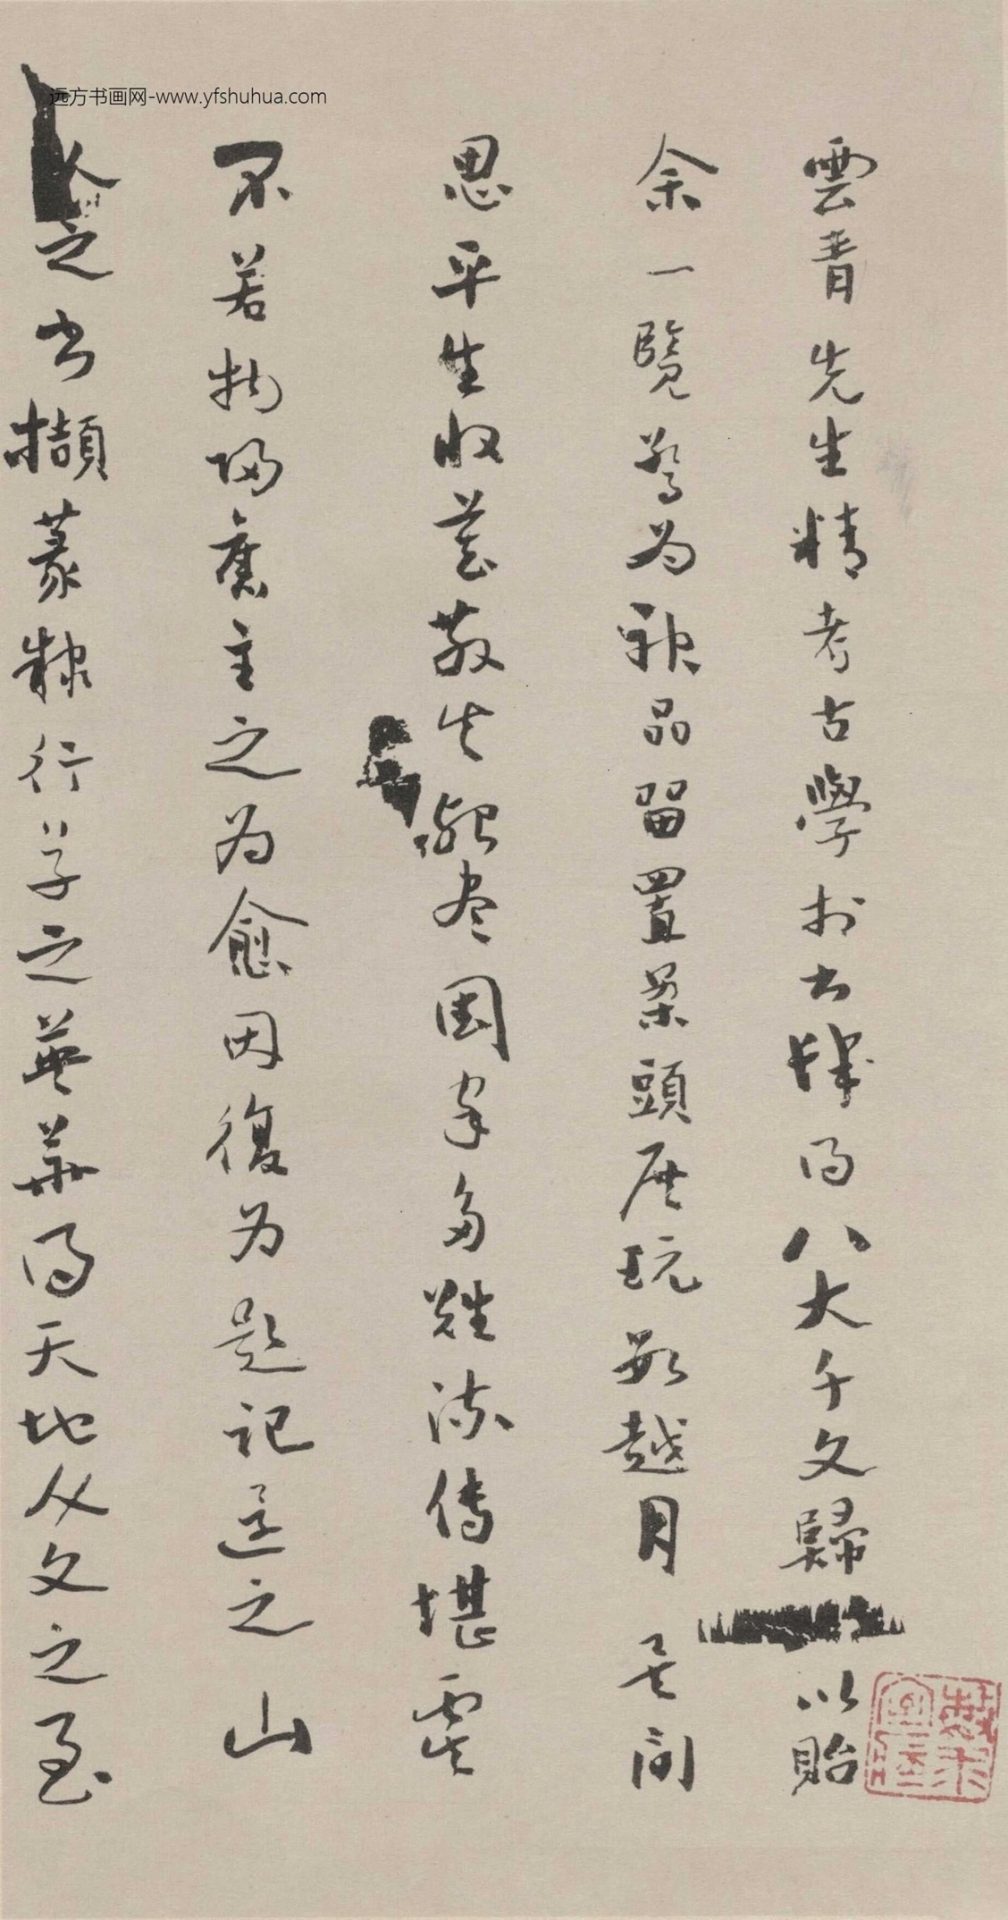 远方书画网-www.yfshuhua.com
雲青先生精考古學於書肆得八大千文歸以貽
余一覽驚為神品留置案頭展玩數越月矣間
思平生收藏散失殆盡國家多難流傳堪虞
不若物歸舊主之為愈因復為題記還之山
人之書擷篆隸行草之英華得天地人文之至